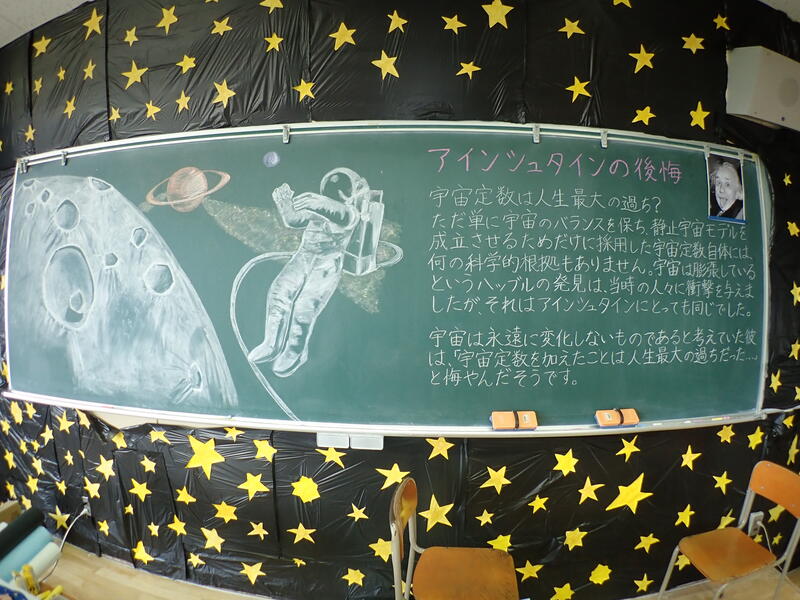 アインシュタインの後悔
宇宙定数は人生最大の過ち?
ただ単に宇宙のバランスを保ち、静止宇宙モデルを
成立させるためだけに採用した宇宙定数自体には、
何の科学的根拠もありません。宇宙は膨張している
というハッブルの発見は、当時の人々に衝撃を与えま
したが、それはアインシュタインにとっても同じでした。
宇宙は永遠に変化しないものであると考えていた彼
は、「宇宙定数を加えたことは人生最大の過ちだった…」
と悔やんだそうです。